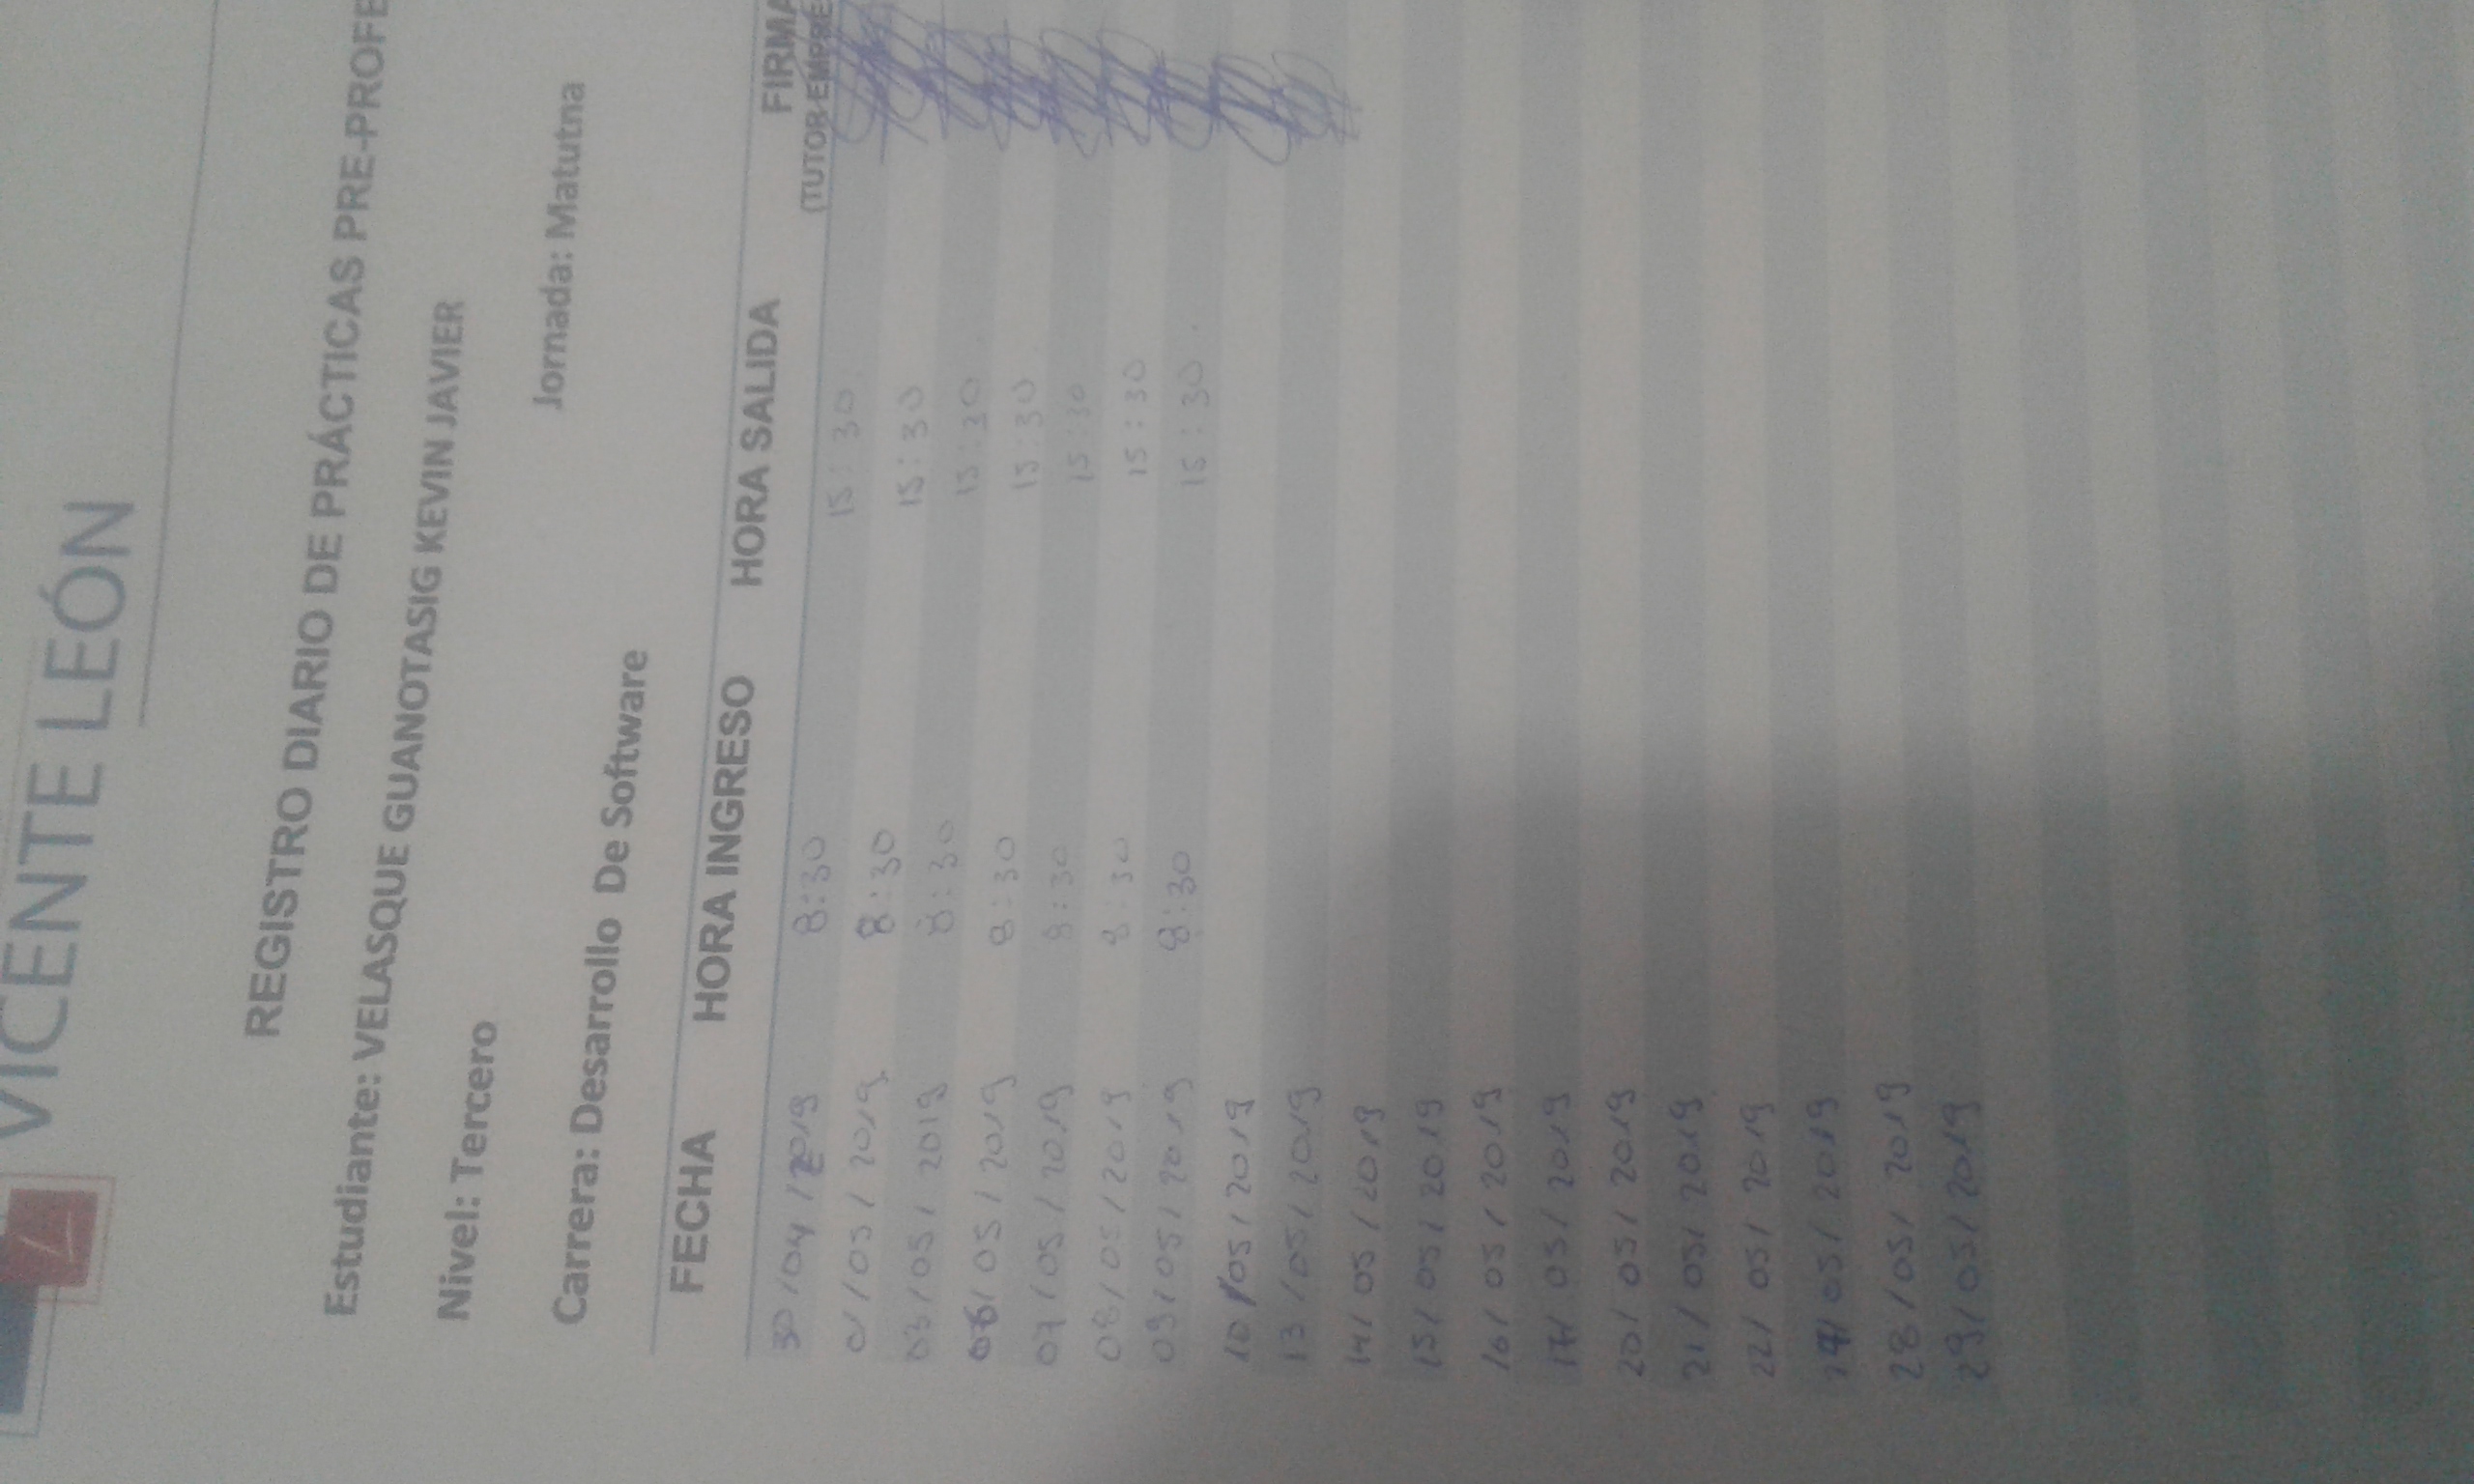 VICENTE LEÓN
REGISTRO DIARIO DE PRÁCTICAS PRE-PROFE
Estudiante: VELASQUE GUANOTASIG KEVIN JAVIER
Nivel: Tercero Jornada: Matutna
Carrera: Desarrollo De Software
FECHA HORA INGRESO HORA SALIDA FIRMA
(TUTOR EMPRE
30/04/2019 8:30 15:30
/05/2019 8:30 15:30
03/05/2019 8:30 15:30
06/05/2019 8:30 15:30
07/05/2019 8:30 15:30
08/05/2019 8:30 15:30
09/05/2019 8:30 15:30
10/05/2019
13/05/2019
14/05/2019
15/05/2019
16/05/2019
17/05/2019
20/05/2019
21/05/2019
22/05/2019
/05/2019
28/05/2019
29/05/2019